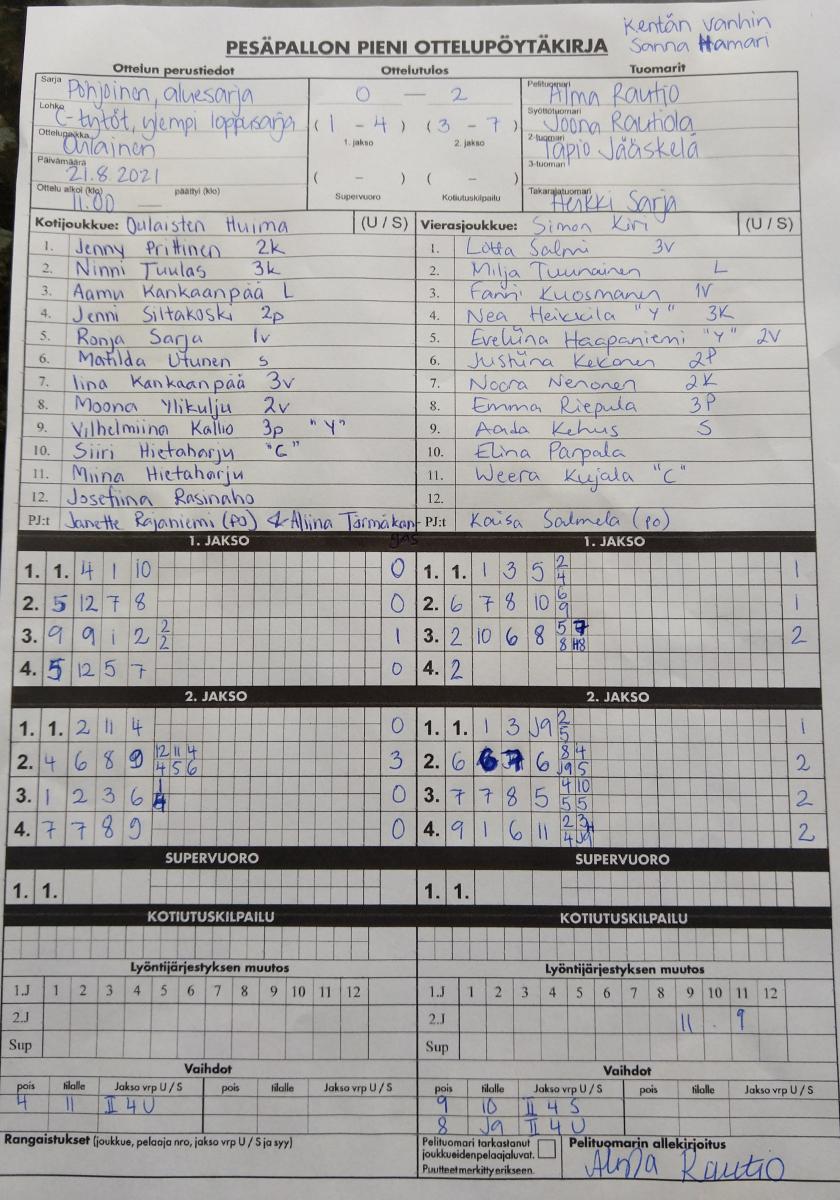 Kentän vanhin
Sanna Hamari
PESÄPALLON PIENI OTTELUPÖYTÄKIRJA
Ottelun perustiedot Ottelutulos Tuomarit
Sarja Pohjoinen, aluesarja 0 — 2 Pelituomari Alma Rautio
Lohko C-tytöt, ylempi loppusarja (1 - 4) (3 - 7) Syöttötuomari Joona Rautiola
Ottelupaikka Oulainen 1. jakso 2. jakso 2-tuomari Tapio Jääskelä
Päivämäärä 21.8.2021 ( - ) ( - ) 3-tuomari
Ottelu alkoi (klo) 11.00 päättyi (klo) — Supervuoro Kotiutuskilpailu Takarajatuomari Heikki Sarja
Kotijoukkue: Oulaisten Huima (U / S) Vierasjoukkue: Simon Kiri (U / S)
1. Jenny Prittinen 2k 1. Lotta Salmi 3v
2. Ninni Tuulas 3k 2. Milja Tuunainen L
3. Aamu Kankaanpää L 3. Fanni Kuosmanen 1V
4. Jenni Siltakoski 2p 4. Nea Heikkilä "Y" 3K
5. Ronja Sarja 1v 5. Eveliina Haapaniemi "Y" 2V
6. Matilda Utunen s 6. Justiina Kekonen 2P
7. Iina Kankaanpää 3v 7. Noora Nenonen 2K
8. Moona Ylikulju 2v 8. Emma Riepula 3P
9. Vilhelmiina Kallio 3p "Y" 9. Aada Kehus S
10. Siiri Hietaharju "C" 10. Elina Parpala
11. Miina Hietaharju 11. Weera Kujala "C"
12. Josefiina Rasinaho 12.
PJ:t Janette Rajaniemi (PO) & Aliina Törmäkangas PJ:t Kaisa Salmela (po)
1. JAKSO 1. JAKSO
1. 1. 4 1 10 0 1. 1. 1 3 5 2/4 1
2. 5 12 7 8 0 2. 6 7 8 10 6/9 1
3. 9 9 1 2 2/2 1 3. 2 10 6 8 5/8 7/H8 2
4. 5 12 5 7 0 4. 2
2. JAKSO 2. JAKSO
1. 1. 2 11 4 0 1. 1. 1 3 J9 2/5 1
2. 4 6 8 9 12/4 11/5 4/6 3 2. 6 6 7 6 8/J9 4/5 2
3. 1 2 3 6 1/4 0 3. 7 7 8 5 4/5 10/5 2
4. 7 7 8 9 0 4. 9 1 6 11 2/4 3/J9 2
SUPERVUORO SUPERVUORO
1. 1. 1. 1.
KOTIUTUSKILPAILU KOTIUTUSKILPAILU
Lyöntijärjestyksen muutos Lyöntijärjestyksen muutos
1.J 1 2 3 4 5 6 7 8 9 10 11 12 1.J 1 2 3 4 5 6 7 8 9 10 11 12
2.J 2.J 11 9
Sup Sup
Vaihdot Vaihdot
pois tilalle Jakso vrp U / S pois tilalle Jakso vrp U / S pois tilalle Jakso vrp U / S pois tilalle Jakso vrp U / S
4 11 II 4 U 9 10 II 4 S
8 J9 II 4 U
Rangaistukset (joukkue, pelaaja nro, jakso vrp U / S ja syy) Pelituomari tarkastanut Pelituomarin allekirjoitus
joukkueidenpelaajaluvat.
Puutteet merkitty erikseen. Alma Rautio